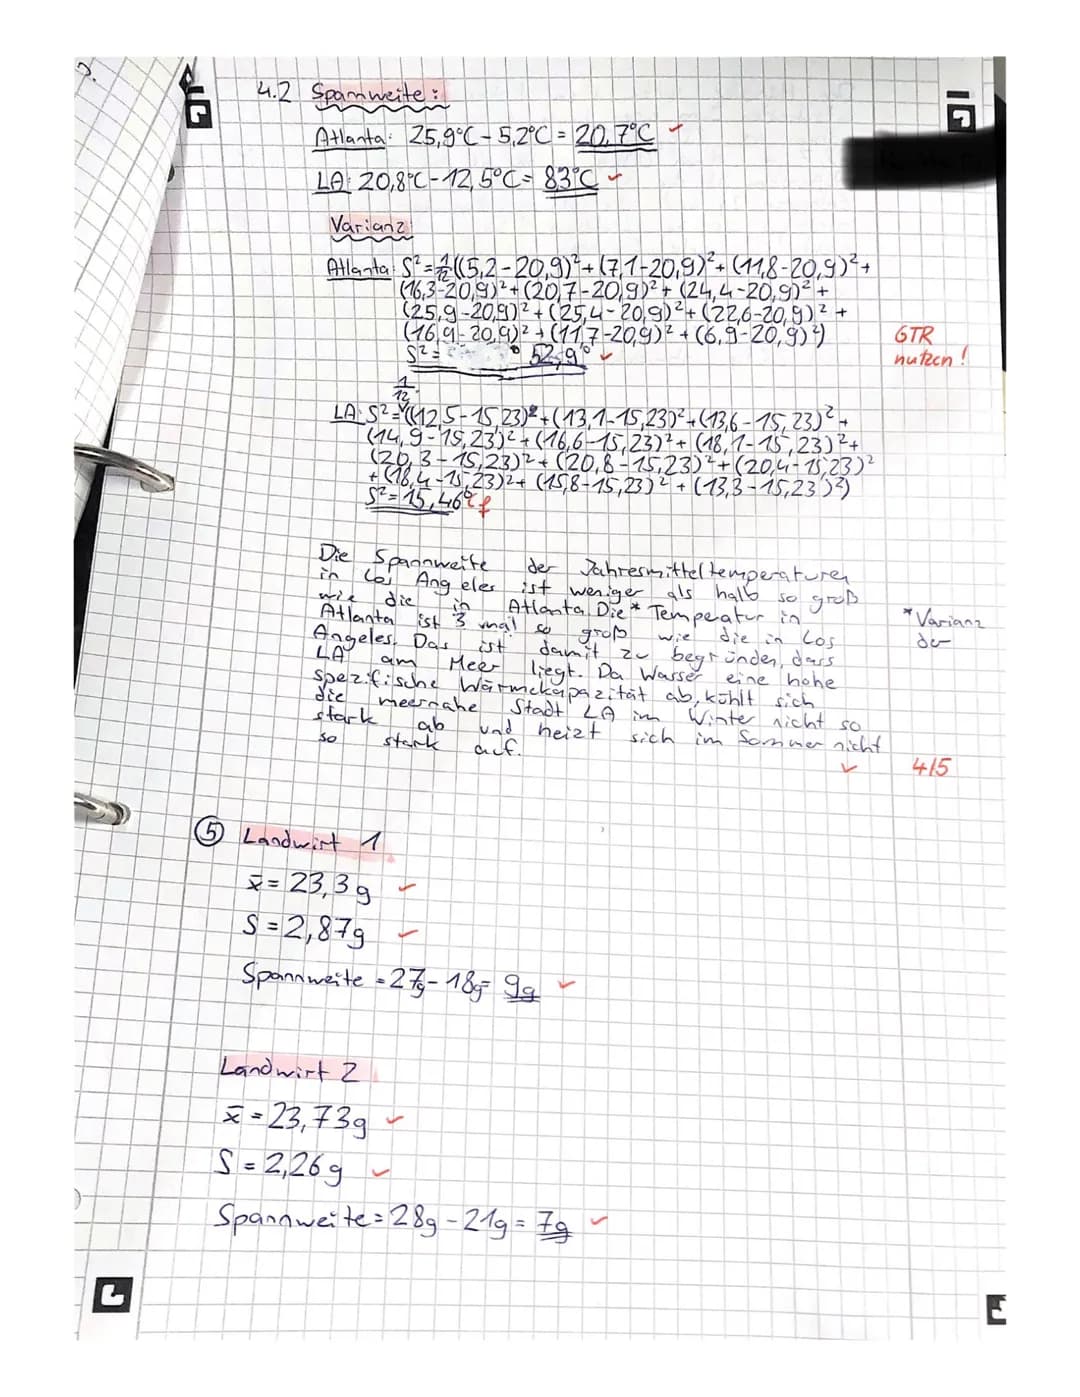 4.2 Spannweite:
Atlanta: 25,9°C - 5,2°C = 20,7°C ✓
LA: 20,8°C - 12,5°C = 8,3°C ✓
Varianz:
Atlanta: S² = 1/12 ((5,2-20,9)² + (7,1-20,9)² + (11,8-20,9)² +
(16,3-20,9)² + (20,7-20,9)² + (24,4-20,9)² +
(25,9-20,9)² + (25,4-20,9)² + (22,6-20,9)² +
(16,9-20,9)² + (11,7-20,9)² + (6,9-20,9)²)
GTR
nutzen!
S² = 52,9° ✓
1/12
LA: S² = ((12,5-15,23)² + (13,1-15,23)² + (13,6-15,23)² +
(14,9-15,23)² + (16,6-15,23)² + (18,1-15,23)² +
(20,3-15,23)² + (20,8-15,23)² + (20,4-15,23)²
+ (18,4-15,23)² + (15,8-15,23)² + (13,3-15,23)²)
S² = 15,46° f
Die Spannweite der Jahresmitteltemperaturen
in Los Angeles ist weniger als halb so groß
wie die in Atlanta. Die* Temperatur in
*Varianz
der
Atlanta ist 3 mal so groß wie die in Los
Angeles. Das ist damit zu begründen, dass
LA am Meer liegt. Da Wasser eine hohe
spezifische Wärmekapazität ab, kühlt sich
die meernahe Stadt LA im Winter nicht so
stark ab und heizt sich im Sommer nicht
so stark auf.
✓ 4/5
⑤ Landwirt 1
x̄ = 23,3g ✓
S = 2,87g ✓
Spannweite = 27g - 18g = 9g ✓
Landwirt 2
x̄ = 23,73g ✓
S = 2,26g ✓
Spannweite = 28g - 21g = 7g ✓